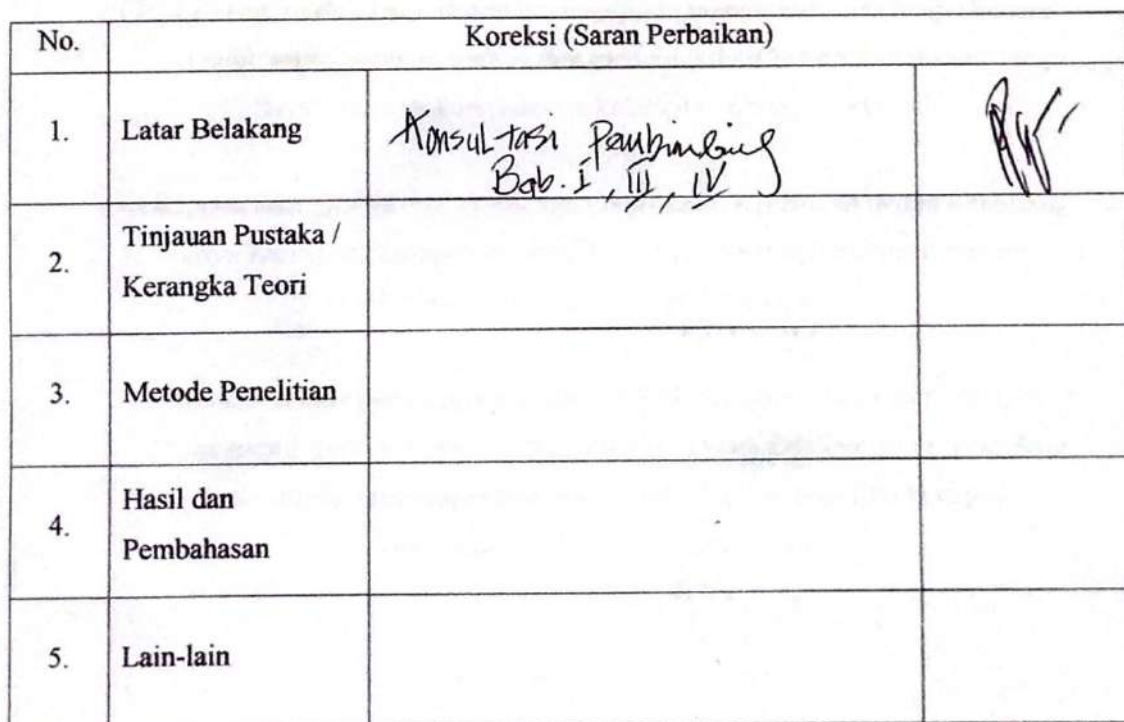 No. Koreksi (Saran Perbaikan)
1. Latar Belakang Konsultasi Pembimbing
Bab. I, III, IV
Tinjauan Pustaka /
2.
Kerangka Teori
3. Metode Penelitian
Hasil dan
4.
Pembahasan
5. Lain-lain